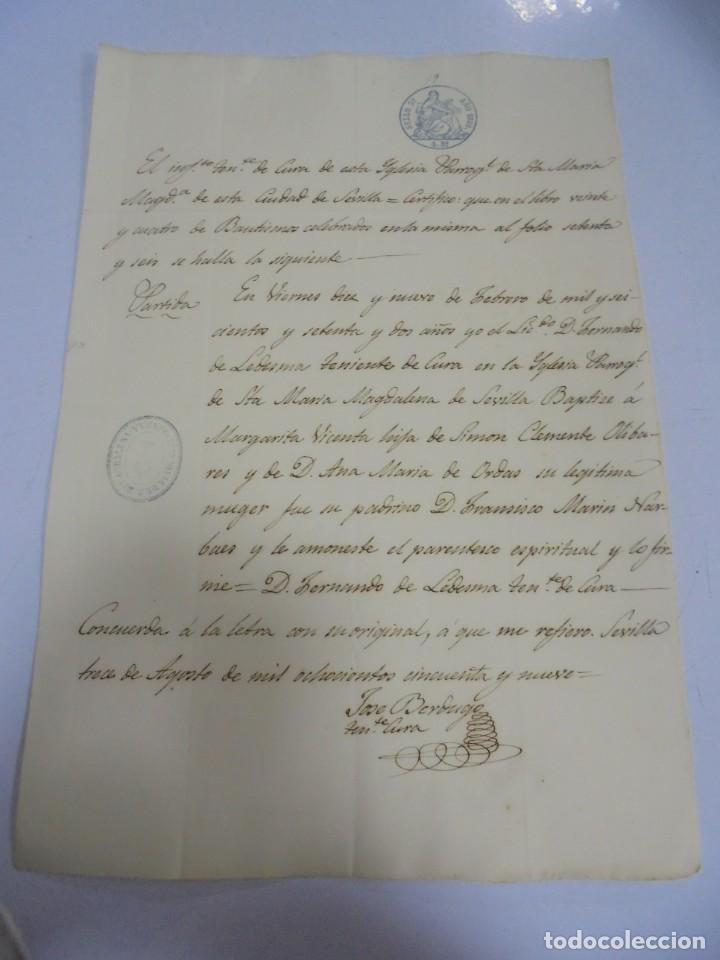 El infr.to ten.te de Cura de esta Yglesia Parroq.l de Sta Maria
Magd.a de esta Ciudad de Sevilla = Certifico: que en el libro veinte
y cuatro de Bautismos celebrados en la misma al folio setenta
y seis se halla la siguiente
Partida
En Viernes diez y nueve de Febrero de mil y sei
cientos y setenta y dos años yo el Lic.do D. Fernando
de Ledesma teniente de Cura en la Yglesia Parroq.l
de Sta Maria Magdalena de Sevilla Baptize á
Margarita Vicenta hija de Simon Clemente Oliba
res y de D. Ana Maria de Ordas su legitima
muger fue su padrino D. Francisco Marin Nar
baes y le amoneste el parentesco espiritual y lo fir
me = D. Fernando de Ledesma ten.te de Cura
Concuerda á la letra con su original, á que me refiero. Sevilla
trece de Agosto de mil ochocientos cincuenta y nueve =
Jose Berdugo
ten.te Cura
todocoleccion
todocoleccion.net